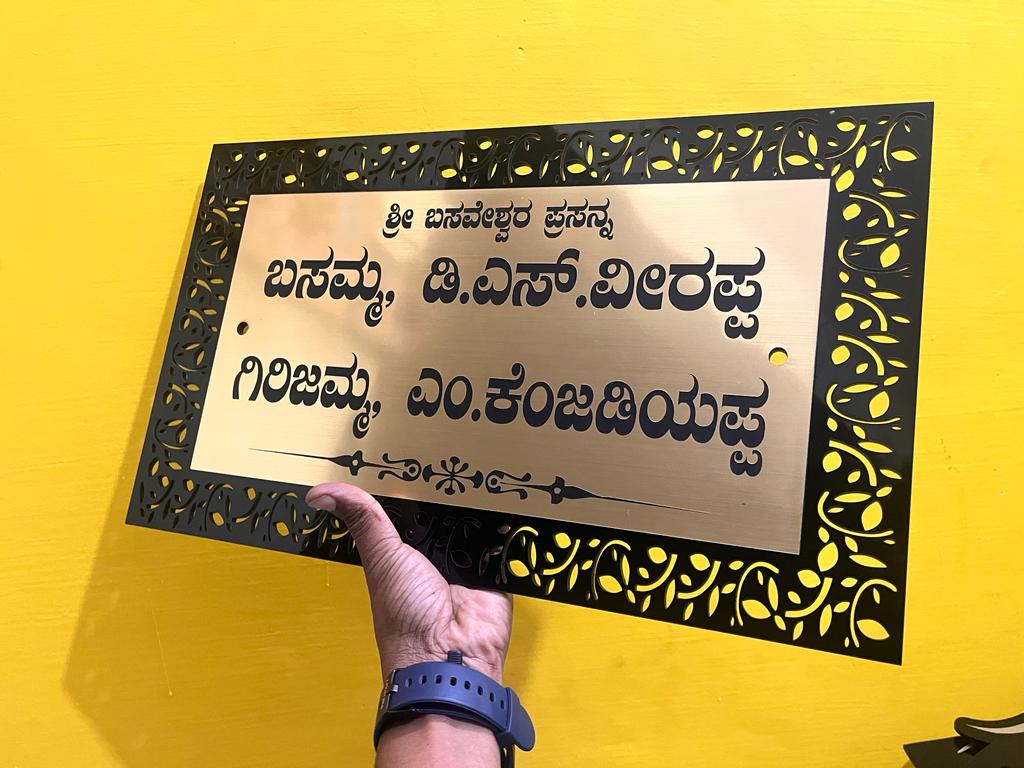 ಶ್ರೀ ಬಸವೇಶ್ವರ ಪ್ರಸನ್ನ
ಬಸಮ್ಮ, ಡಿ.ಎಸ್.ವೀರಪ್ಪ
ಗಿರಿಜಮ್ಮ, ಎಂ.ಕೆಂಜಡಿಯಪ್ಪ